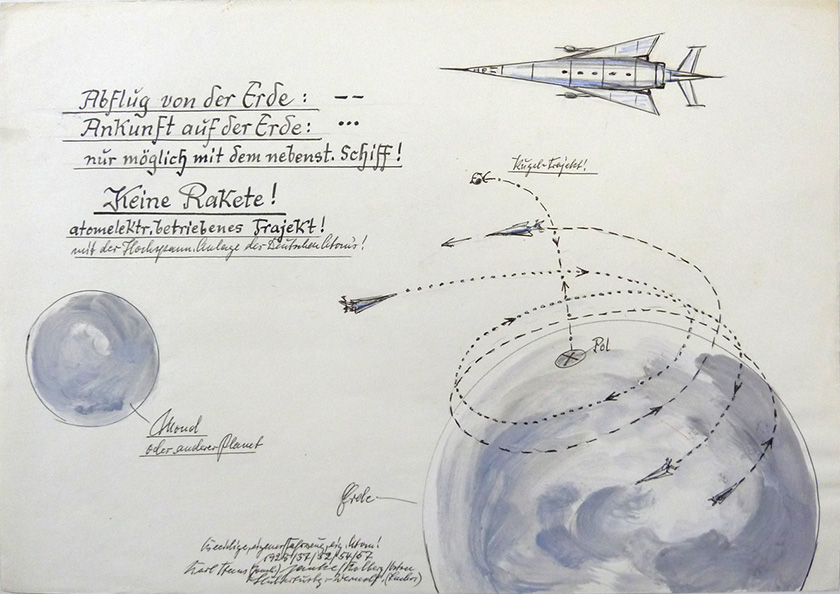 Abflug von der Erde: – –
Ankunft auf der Erde: •••
nur möglich mit dem nebenst. Schiff!
Keine Rakete!
atomelektr. betriebenes Trajekt!
mit der Hochspann. Anlage des Deutschen Atoms!
Kugel-Trajekt!
Pol
Mond
oder anderer Planet
Erde
Karl Hans